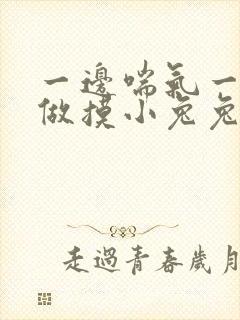 一邊喘氣一
做摸小兔兔
走過青春歲月